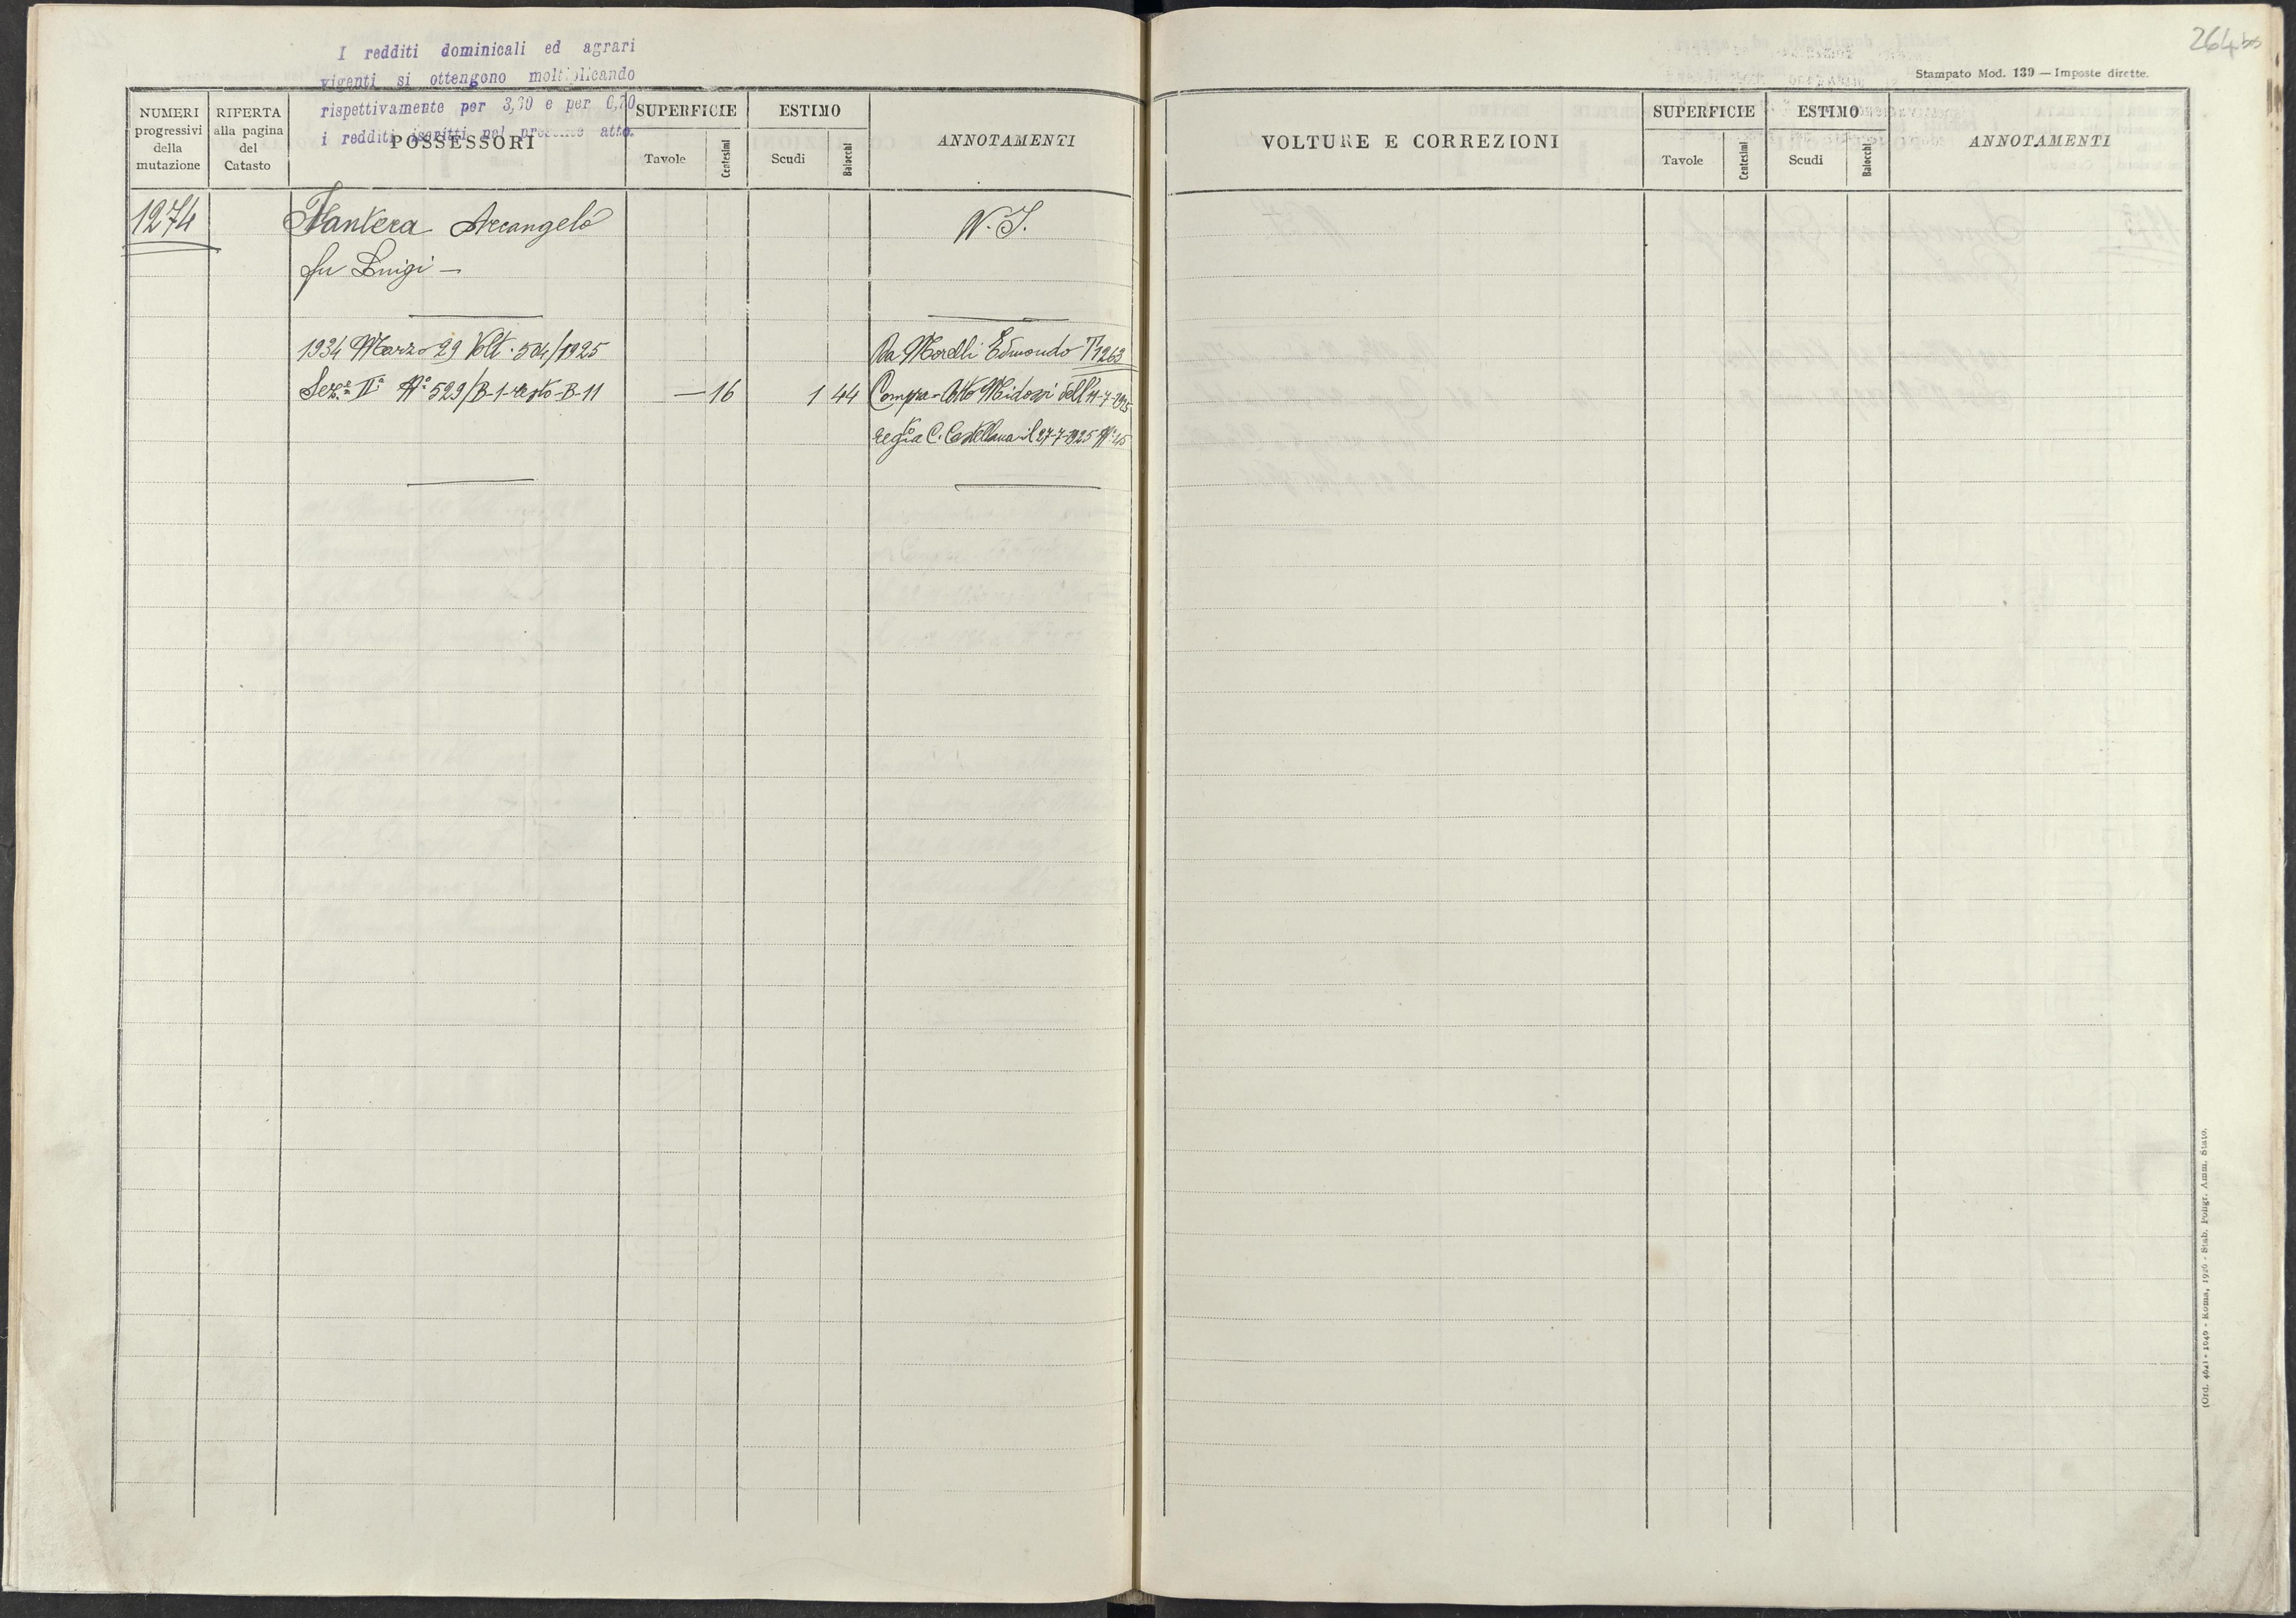 264 bis
I redditi dominicali ed agrari
vigenti si ottengono moltiplicando
rispettivamente per 3,30 e per 0,70
i redditi iscritti nel presente atto.
NUMERI progressivi della mutazione
RIFERTA alla pagina del Catasto
POSSESSORI
SUPERFICIE
Tavole
Centesimi
ESTIMO
Scudi
Baiocchi
ANNOTAMENTI
1274
Arcangelo
N. I.
fu Luigi —
1934 Marzo 29 Volt. 504/1925
Da Morelli Edmondo T 1263
Sez.e IIa No 529/B-1-resto-B-11 — 16 1 44
Compra - Atto Midossi dell' 11-7-1925
regto a C. Castellana il 27-7-1925 No 45
Stampato Mod. 139 — Imposte dirette.
VOLTURE E CORREZIONI
SUPERFICIE
Tavole
Centesimi
ESTIMO
Scudi
Baiocchi
ANNOTAMENTI
Roma, 1926 - Stab. Poligr. Amm. Stato.